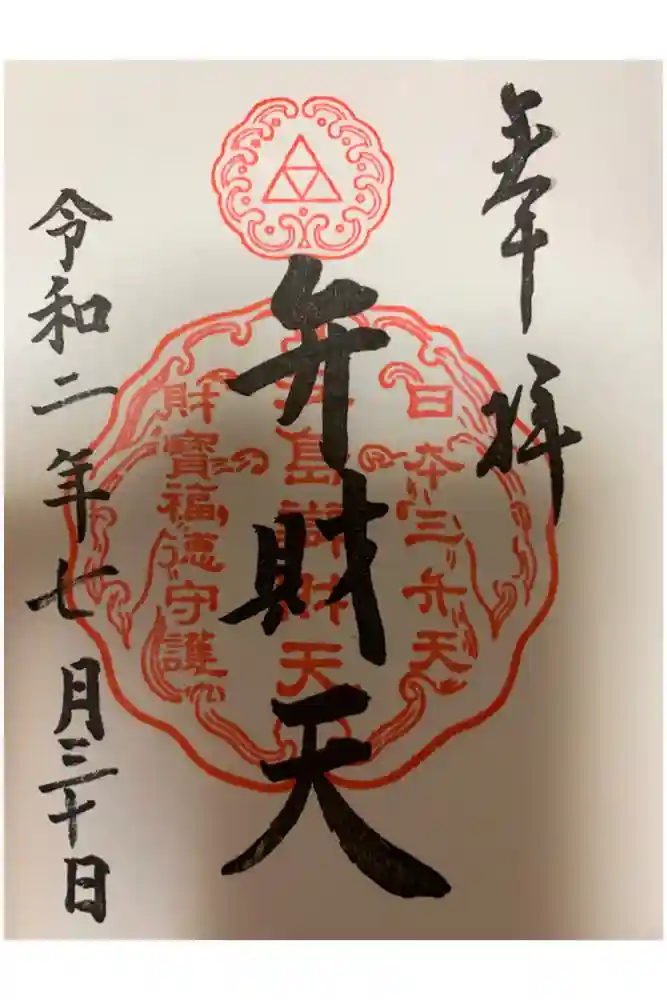 奉拝
日本三弁天
弁財天
島辯財天
財寶福徳守護
令和二年七月三十日